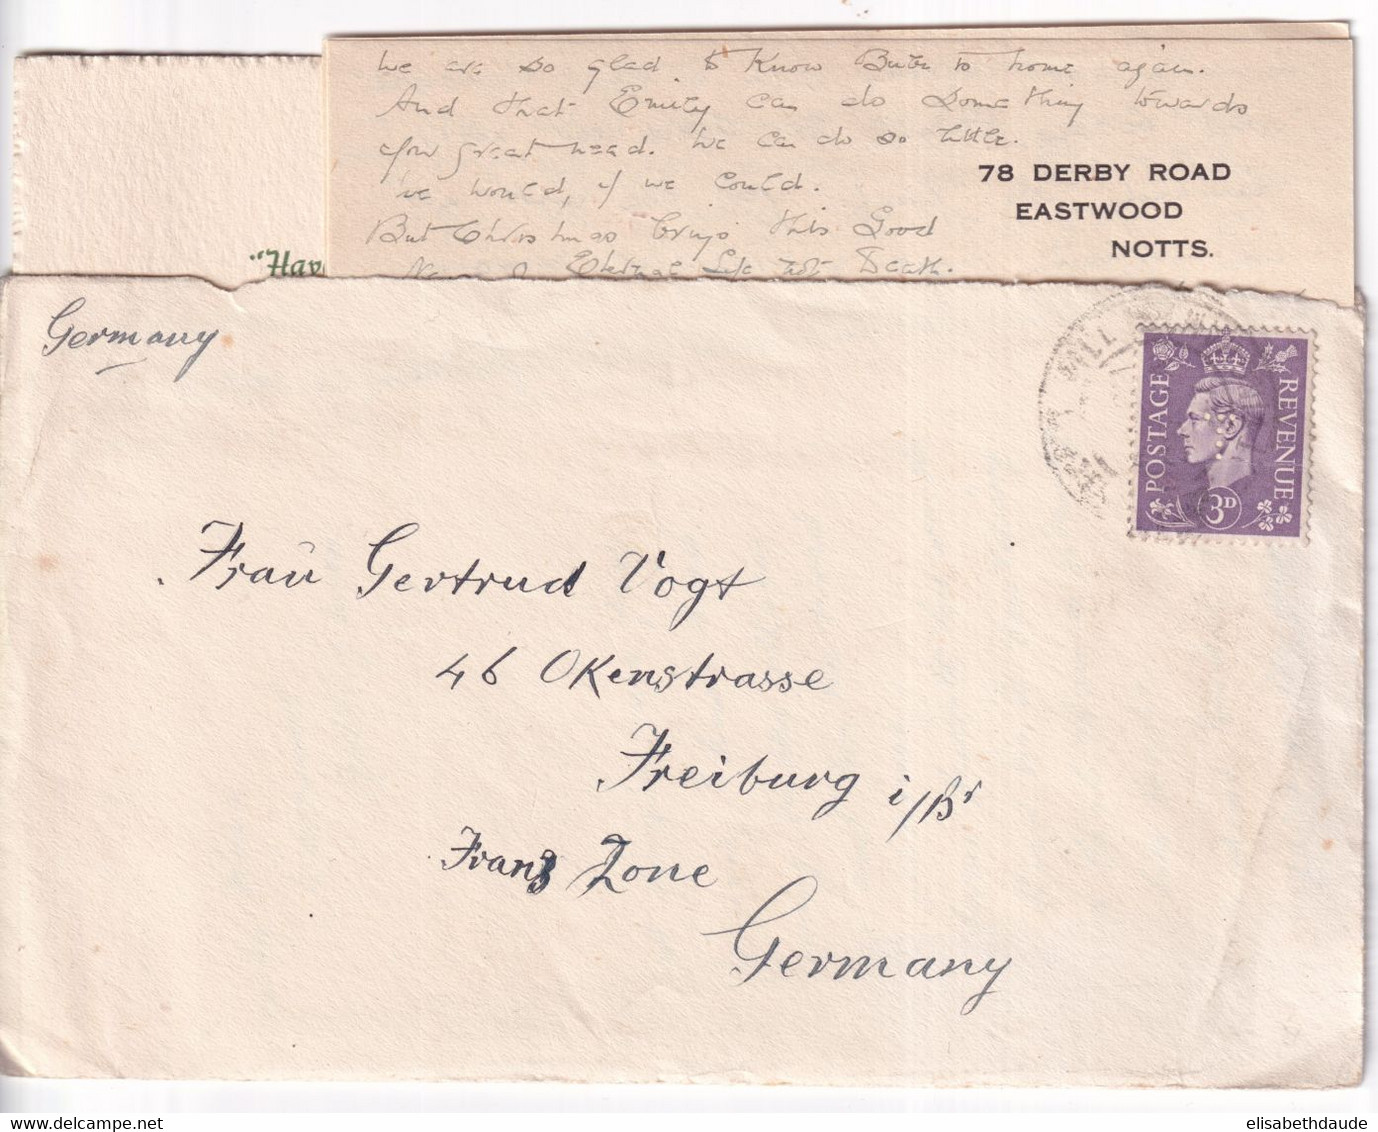 We are so glad to know Buter is home again.
And that Emily can do something towards
your great need. We can do so little.
we would, if we could.
But Christmas brings this Good
News of Eternal Life not Death.
78 DERBY ROAD
EASTWOOD
NOTTS.
"Hav
Germany
POSTAGE
REVENUE
3D
Frau Gertrud Vogt
46 Okenstrasse
Freiburg i/Br
Franz Zone
Germany
elisabethdaude